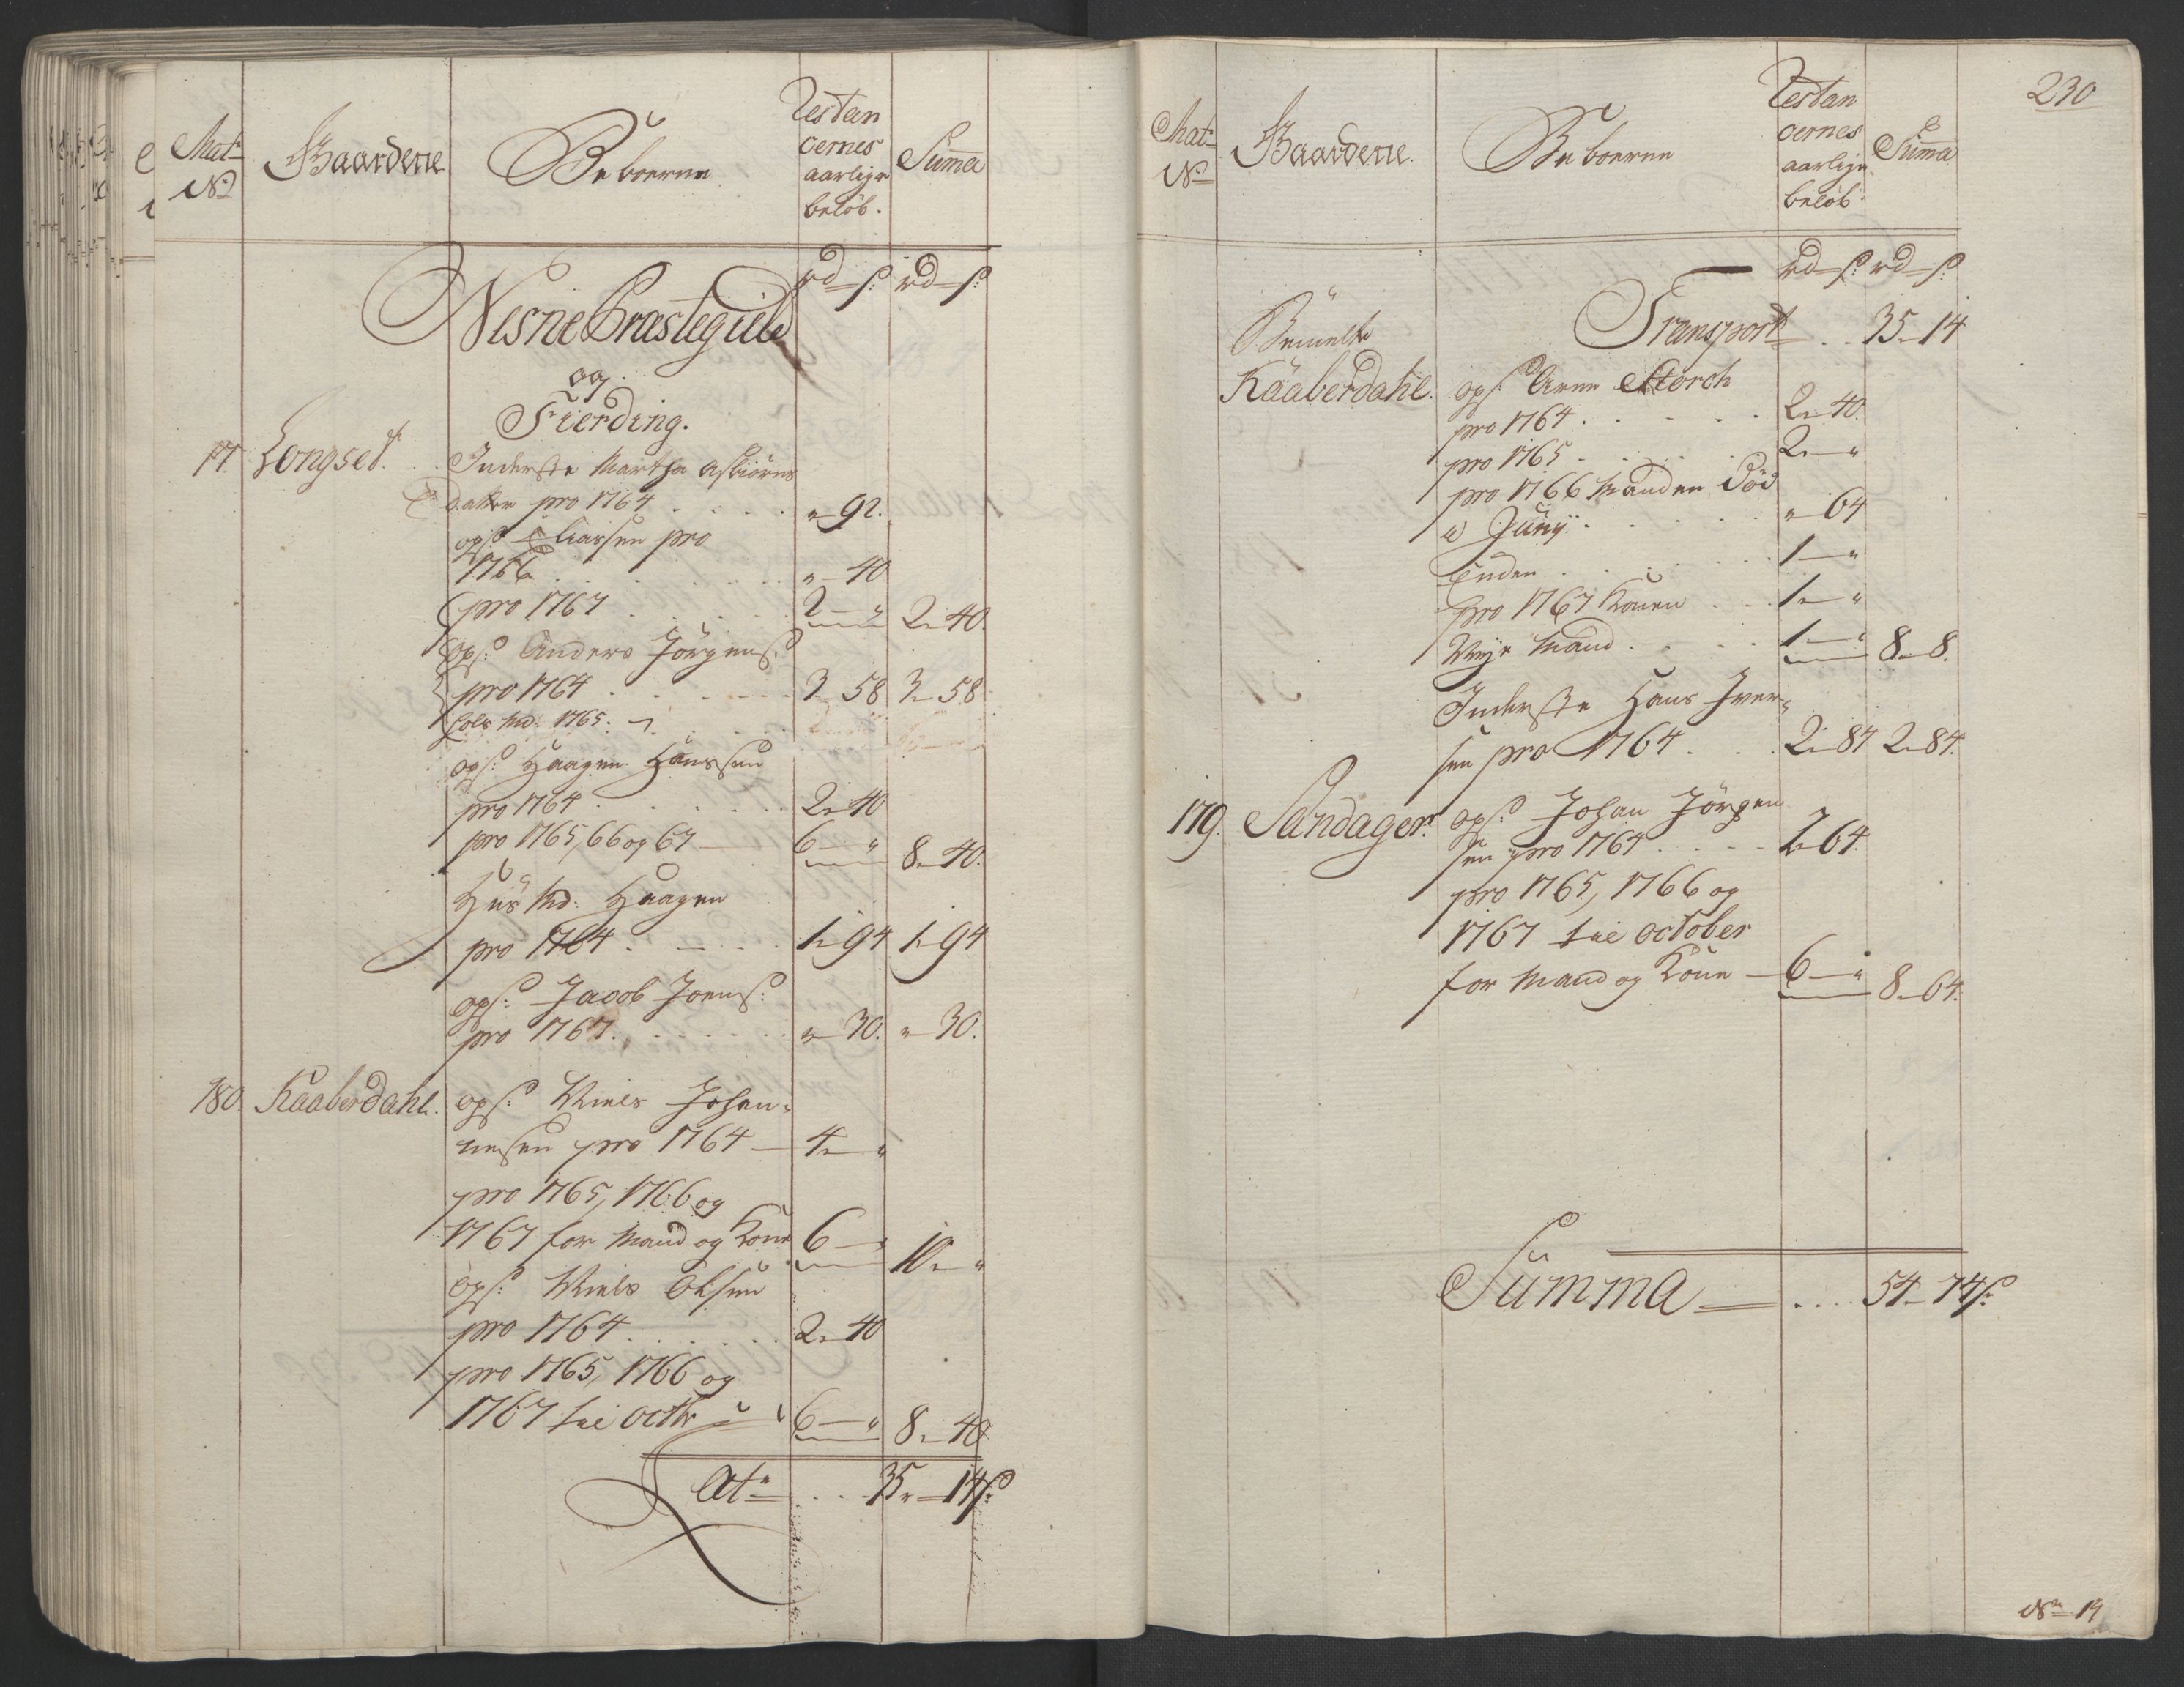 Mat:
No
Gaardene
Beboerne
Restan
cernes
aarlige
beløb.
Summa
rd ſ: rd ſ:
Nesne Præstegield
og
Fierding.
177. Longset. Inderste Martha Asbiörns
datter pro 1764 . . . . „ 92.
opſ: Eliassen pro
1766 . . . . „ 40
pro 1767 . . . . 2 „ 2 40.
opſ: Anders Jörgenſ:
pro 1764 . . . . 3 58 3 58
1765.
opſ: Haagen Hanssen
pro 1764 . . . . 2 40
pro 1765, 66 og 67 — 6 „ 8 40.
Huus Md: Haagen
pro 1764 . . . . 1 94 1 94
opſ: Jacob Joenſ:
pro 1767 . . . . „ 30. „ 30.
180. Kaaberdahl. opſ: Niels Johan-
nesen pro 1764 — 4 „
pro 1765, 1766 og
1767 for Mand og Kone 6 „ 10 „
opſ: Niels Olsen
pro 1764 . . . . 2 40
pro 1765, 1766 og
1767 til Octbr 6 „ 8 40
Lat: . . . 35 14ſ:
230
Mat:
No
Gaardene.
Beboerne
Restan
cernes
aarlige
beløb
Summa
rd ſ: rd ſ:
Transport . . 35 14
Bemelte
Kaaberdahl. opſ: Arne Storch
pro 1764 . . . . 2 40.
pro 1765 . . . . 2 „
pro 1766 Manden död
i Juny . . . . „ 64
Enken . . . . 1 „
pro 1767 Konen . . 1 „
Nye Mand . . . 1 „ 8 8.
Inderste Hans Iver-
sen pro 1764 . . . 2 84 2 84.
179. Sandager. opſ: Johan Jörgen
sen pro 1764 . . . 2 64.
pro 1765, 1766 og
1767 til October
for Mand og Kone — 6 „ 8 64.
Summa — . . . . 54 74ſ:
No 19